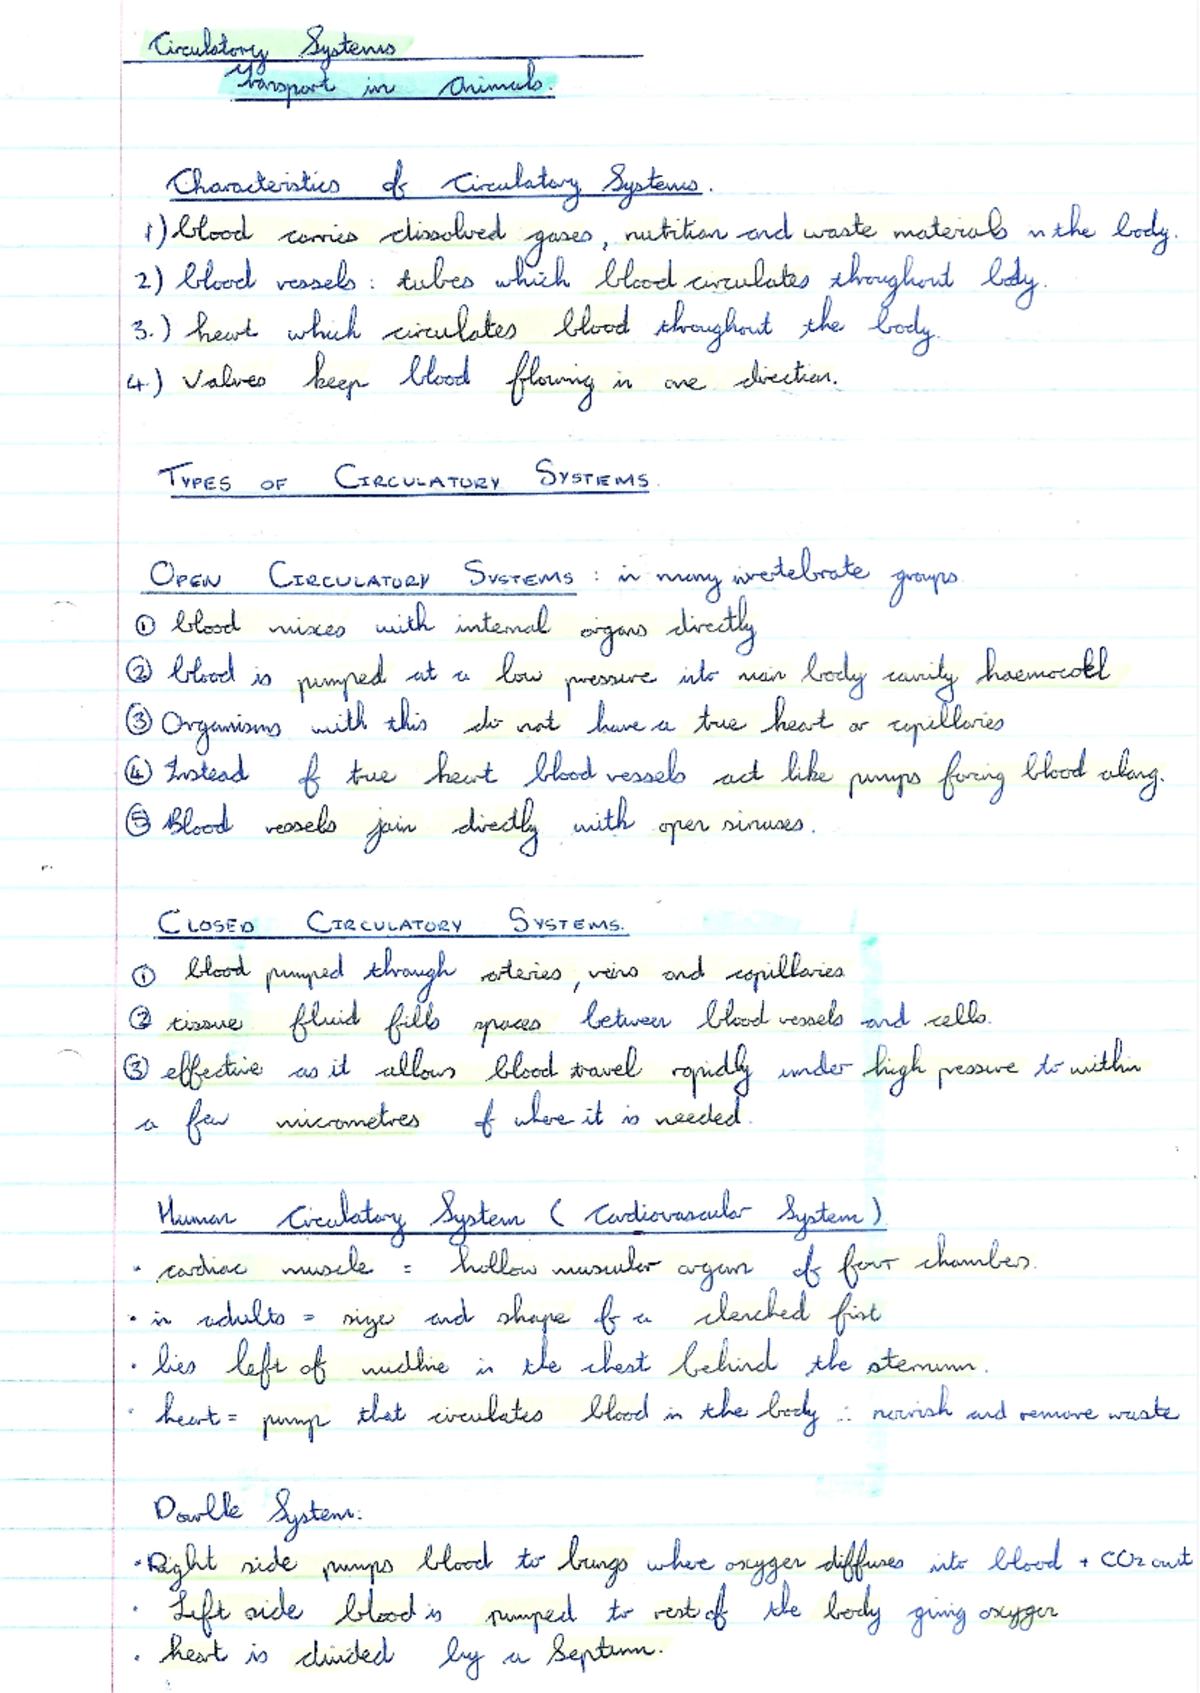 Circulatory Systems
Transport in Animals.
Characteristics of Circulatory Systems.
1) blood carries dissolved gases, nutrition and waste materials n the body.
2) blood vessels: tubes which blood circulates throughout body.
3.) heart which circulates blood throughout the body.
4) Valves keep blood flowing in one direction.
TYPES OF CIRCULATORY SYSTEMS.
OPEN CIRCULATORY SYSTEMS: in many invertebrate groups.
① blood mixes with internal organs directly
② blood is pumped at a low pressure into main body cavity haemocoel
③ Organisms with this do not have a true heart or capillaries
④ Instead of true heart blood vessels act like pumps forcing blood along.
⑤ Blood vessels join directly with open sinuses.
CLOSED CIRCULATORY SYSTEMS.
① blood pumped through arteries, veins and capillaries
② tissue fluid fills spaces between blood vessels and cells.
③ effective as it allows blood travel rapidly under high pressure to within
a few micrometres of where it is needed.
Human Circulatory System (Cardiovascular System)
· cardiac muscle = hollow muscular organ of four chambers.
· in adults = size and shape of a clenched fist
· lies left of midline in the chest behind the sternum.
· heart = pump that circulates blood in the body ∴ nourish and remove waste
Double System:
· Right side pumps blood to lungs where oxygen diffuses into blood + CO2 out
· Left side blood is pumped to rest of the body giving oxygen
· heart is divided by a Septum.